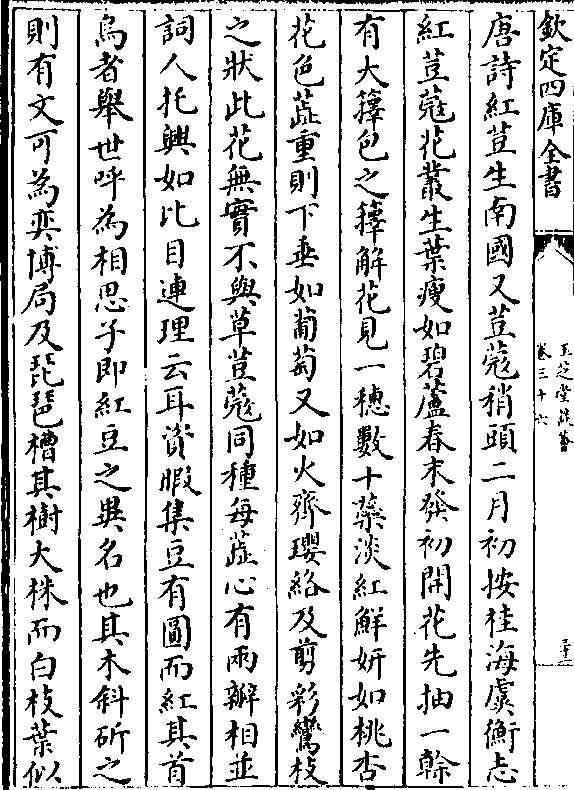 欽定四庫全書
玉芝堂談薈
卷三十六
唐詩紅荳生南國又荳蔻稍頭二月初按桂海虞衡志
紅荳蔻花叢生葉瘦如碧蘆春末發初開花先抽一榦
有大籜包之籜解花見一穗數十蘂淡紅鮮妍如桃杏
花色蕋重則下垂如葡萄又如火齊瓔絡及剪彩鸞枝
之狀此花無實不與草荳蔻同種每蕋心有兩瓣相並
詞人托興如比目連理云耳資暇集豆有圎而紅其首
烏者舉世呼為相思子即紅豆之異名也其木斜斫之
則有文可為奕博局及琵琶槽其樹大株而白枝葉似